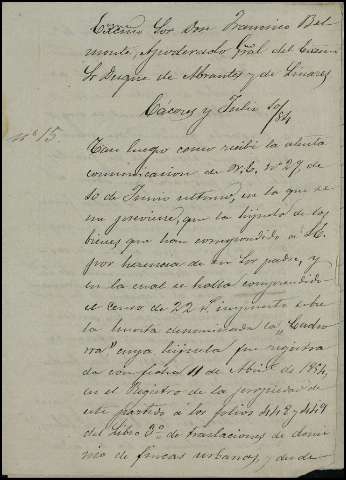 Excmo Sor Don Francisco Bel-
monte, Apoderado Gral del Excmo
Sr Duque de Abrantes y de Linares
Cáceres y Julio 10/84
nº 15.
Tan luego como recibí la atenta
comunicacion de V.E. nº 27, de
10 de Junio ultimo, en la que se
me previene, que la hijuela de los
bienes que han correspondido á S.E.
por herencia de su Sor padre, y
en la cual se halla comprendido
el censo de 22 rs. impuesto sobre
la huerta denominada la "Cuadro
rra" cuya hijuela fue registra
da con fecha 11 de Abril de 1854,
en el Registro de la propiedad de
este partido á los folios 448 y 449
del libro 3º de traslaciones de domi
nio de fincas urbanas, y desde